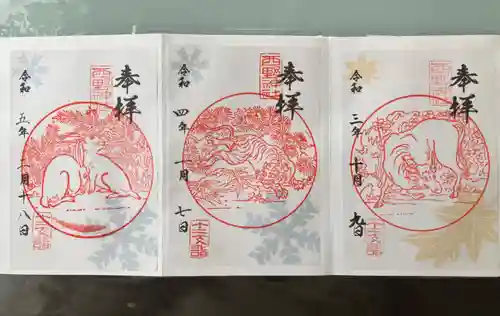 奉拝
西野神社
令和
五年
二月十八日
十二支詣
奉拝
西野神社
令和
四年
一月
七日
十二支詣
奉拝
西野神社
令和
三年
十月
九日
十二支詣